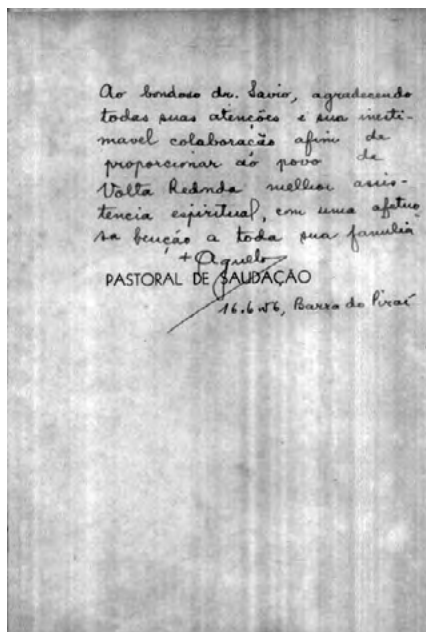 Ao bondoso dr. Savio, agradecendo
todas suas atenções e sua inesti-
mavel colaboração afim de
proporcionar ao povo de
Volta Redonda melhor assis-
tencia espiritual, com uma afetuo
sa benção a toda sua familia
+ Agnelo
PASTORAL DE SAUDAÇÃO
16.6.56, Barra do Piraí